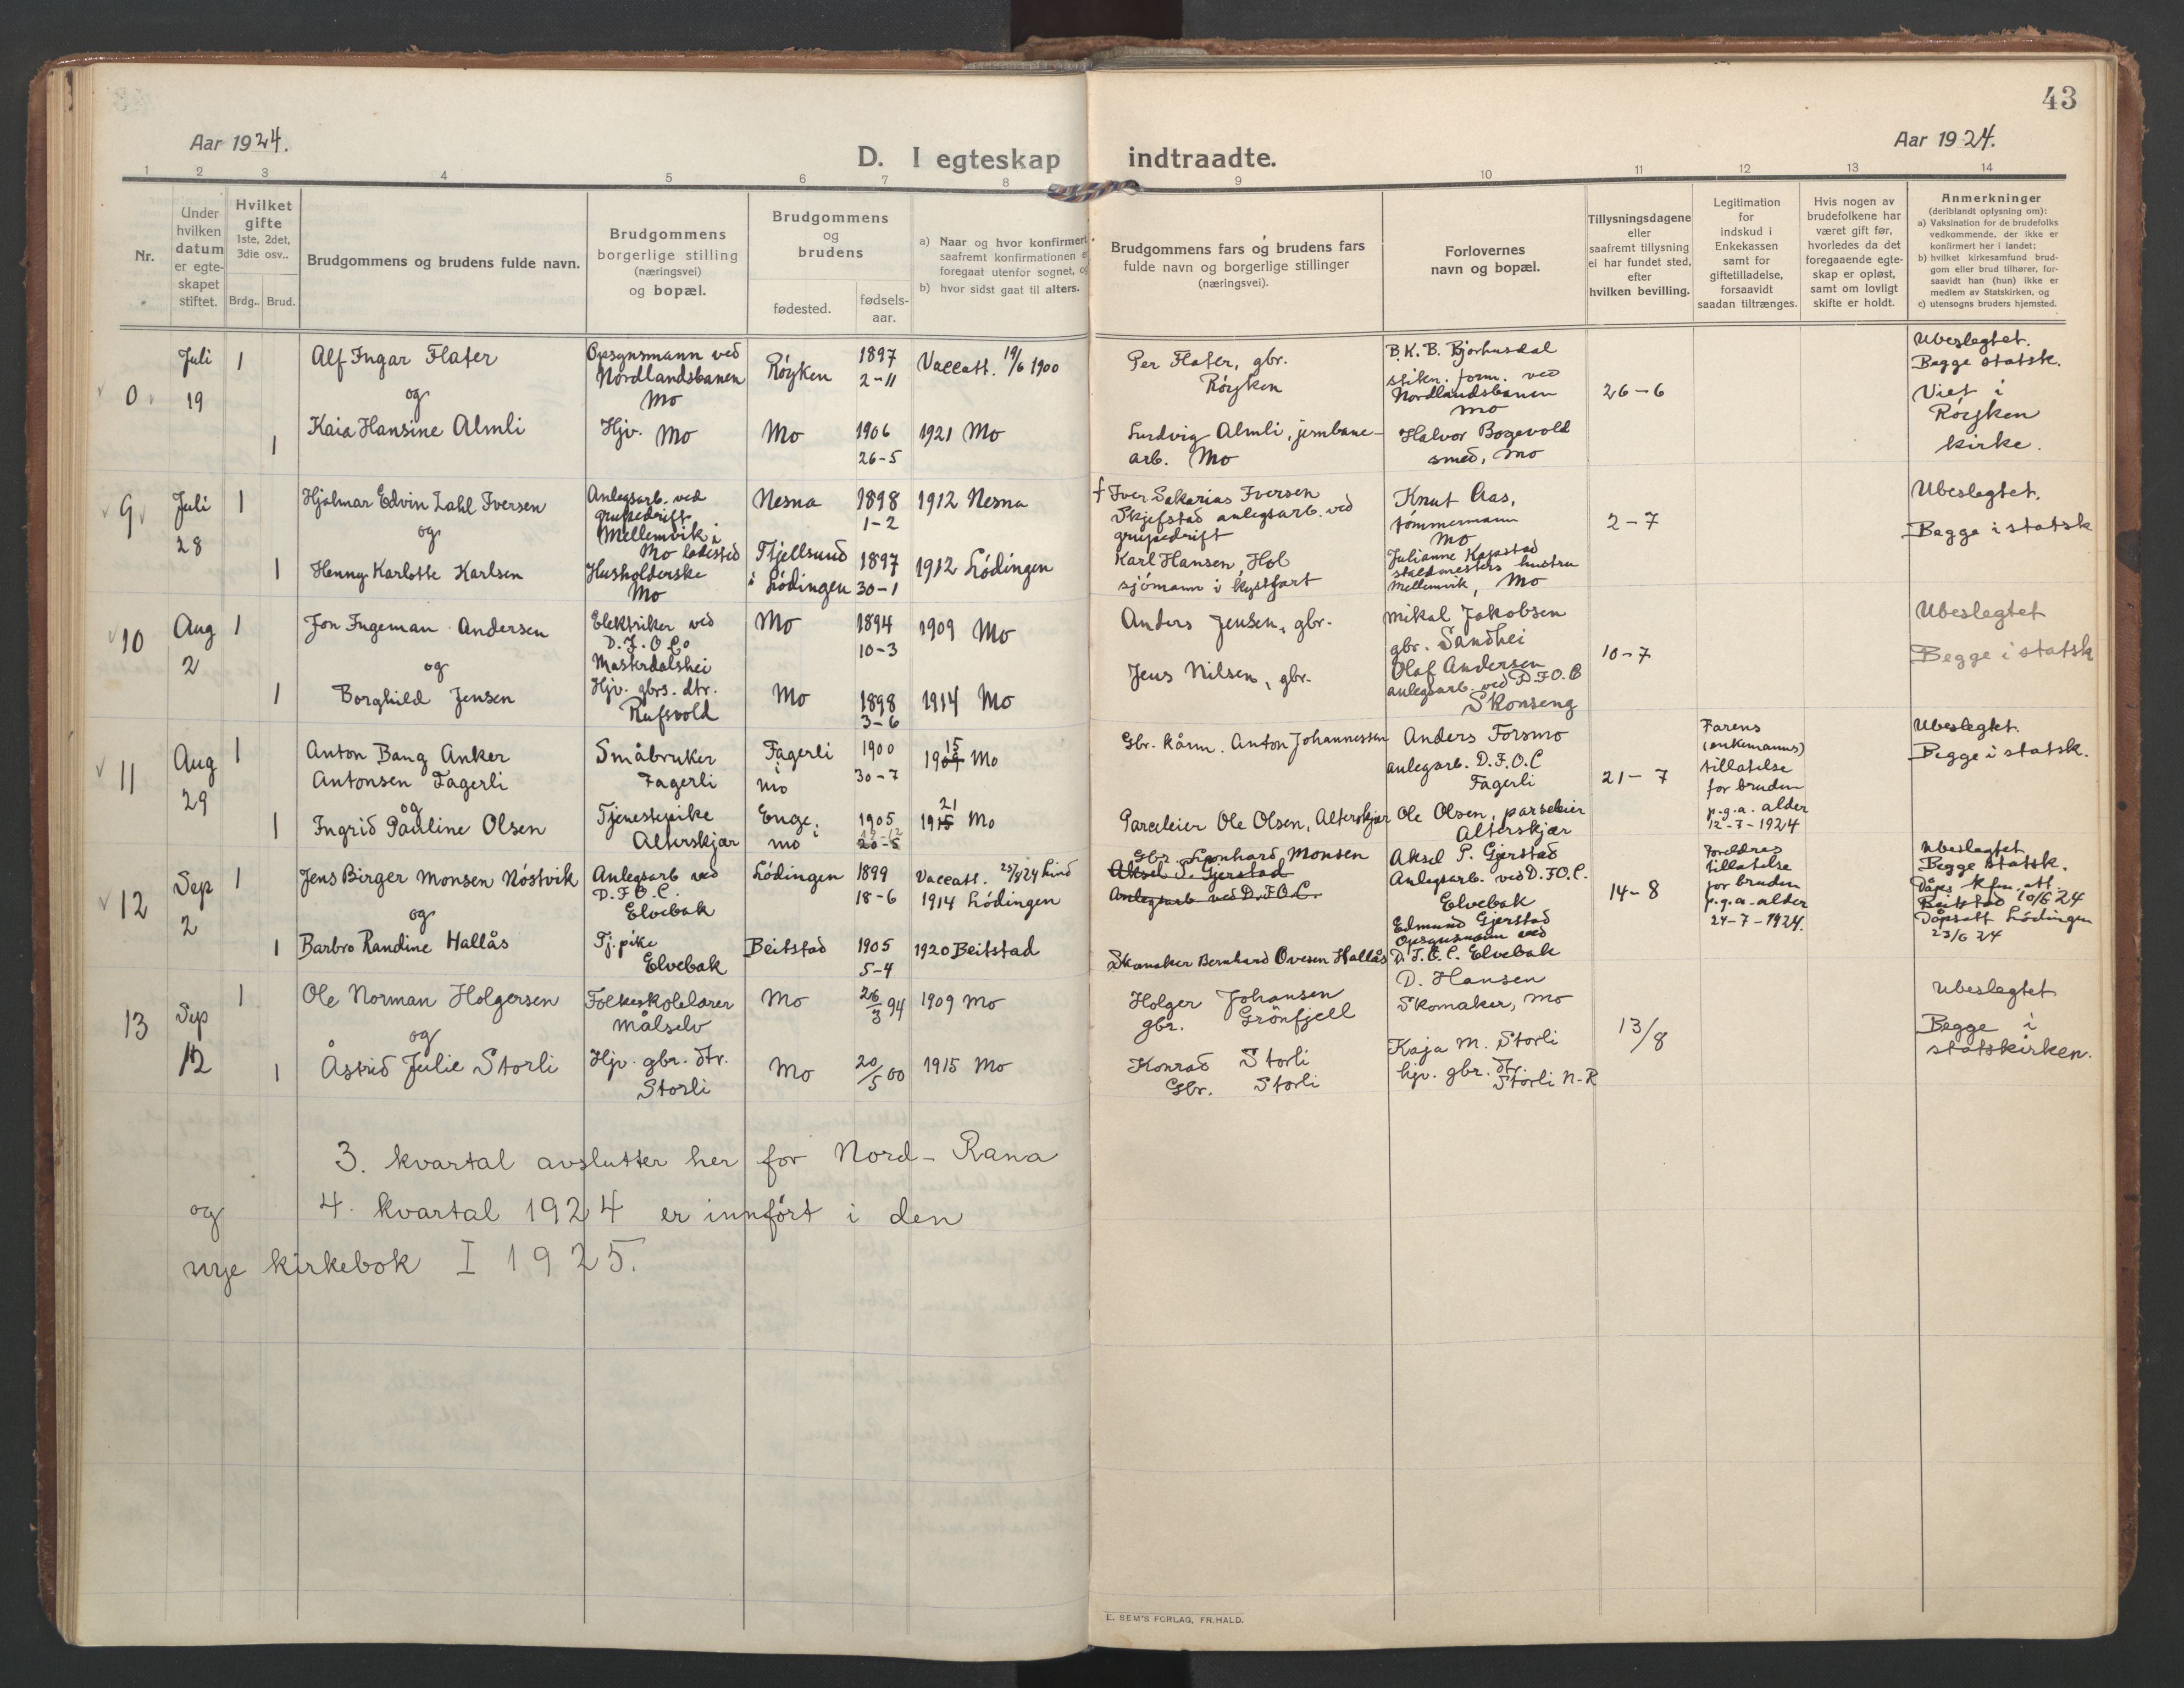 43
Aar 1924.
Aar 1924.
D. I egteskap indtraadte.
1 2 3 4 5 6 7 8 9 10 11 12 13 14
Nr.
Under
hvilken
datum
er egte-
skapet
stiftet.
Hvilket
gifte
1ste, 2det,
3die osv..
Brdg.. Brud.
Brudgommens og brudens fulde navn.
Brudgommens
borgerlige stilling
(næringsvei)
og bopæl.
Brudgommens
og
brudens
fødested.
fødsels-
aar.
a) Naar og hvor konfirmert
saafremt konfirmationen e
foregaat utenfor sognet, og
b) hvor sidst gaat til alters.
Brudgommens fars og brudens fars
fulde navn og borgerlige stillinger
(næringsvei).
Forlovernes
navn og bopæl.
Tillysningsdagene
eller
saafremt tillysning
ei har fundet sted,
efter
hvilken bevilling.
Legitimation
for
indskud i
Enkekassen
samt for
giftetilladelse,
forsaavidt
saadan tiltrænges.
Hvis nogen av
brudefolkene har
været gift før,
hvorledes da det
foregaaende egte-
skap er opløst,
samt om lovligt
skifte er holdt.
Anmerkninger
(deriblandt oplysning om):
a) Vaksination for de brudefolks
vedkommende, der ikke er
konfirmert her i landet;
b) hvilket kirkesamfund brud-
gom eller brud tilhører, for-
saavidt han (hun) ikke er
medlem av Statskirken, og
c) utensogns bruders hjemsted.
0
Juli
19
1
Alf Ingar Flater
og
Opsynsmann ved
Nordlandsbanen
Mo
Røyken
1897
2-11
Vaccatt. 19/6 1900
Per Flater, gbr.
Røyken
B.K.B. Bjorhusdal
stikn. form. ved
Nordlandsbanen
Mo
26-6
Ubeslegtet.
Begge statsk.
Viet i
Røyken
kirke.
1
Kaia Hansine Almli
Hjv. Mo
Mo
1906
26-5
1921 Mo
Ludvig Almli, jernbane-
arb. Mo
Halvor Bogevold
smed, Mo
9
Juli
28
1
Hjalmar Edvin Zahl Iversen
og
Anlegsarb. ved
grubedrift
Mellemvik i
Mo ladested
Nesna
1898
1-2
1912 Nesna
† Iver Sakarias Iversen
Skjefstad anlegsarb. ved
grubedrift
Knut Aas,
tømmermann
Mo
2-7
Ubeslegtet.
Begge i statsk
1
Henny Karlotte Karlsen
Husholderske
Mo
Tjellsund
i Lödingen
1897
30-1
1912 Lödingen
Karl Hansen, Hol
sjömann i kystfart
Julianne Kapstad
staldmesters hustru
Mellemvik, Mo
10
Aug
2
1
Jon Ingeman Andersen
og
Elektriker ved
D.F.O.Co
Mastrdalshei
Mo
1894
10-3
1909 Mo
Anders Jensen, gbr.
Mikal Jakobsen
gbr. Sandhei
10-7
Ubeslegtet
Begge i statsk
1
Borghild Jensen
Hjv. gbrs. dtr.
Rufsvold
Mo
1898
3-6
1914 Mo
Jens Nilsen, gbr.
Olaf Andersen
anlegsarb. ved D.F.O.C
Skonseng
11
Aug
29
1
Anton Bang Anker
Antonsen Fagerli
og
Småbruker
Fagerli
Fagerli
i
Mo
1900
30-7
15
1909 Mo
Gbr. kårm. Anton Johannessen
Anders Forsmo
anlegsarb. D.F.O.C
Fagerli
21-7
Farens
(enkemanns)
tillatelse
for bruden
p.g.a. alder
12-7-1924
Ubeslegtet.
Begge i statsk.
1
Ingrid Pauline Olsen
Tjenestepike
Alterskjær
Enge i
Mo
1905
12-12
20-5
21
1915 Mo
Parseleier Ole Olsen, Alterskjær
Ole Olsen, parseleier
Alterskjær
12
Sep
2
1
Jens Birger Monsen Nöstvik
og
Anlegsarb ved
D.F.O.C.
Elvebak
Lödingen
1899
18-6
Vaccatt. 25/8 24
1914 Lödingen
Gbr. Leonhard Monsen
Aksel P. Gjerstad
Anlegsarb ved D.F.O.C.
Aksel P. Gjerstad
Anlegsarb. ved D.F.O.C.
Elvebak
14-8
Foreldres
tillatelse
for bruden
p.g.a. alder
24-7-1924.
Ubeslegtet
Begge statsk.
Dåps- kfm. att.
Beitstad 10/6 24
Dåpsatt Lödingen
23/6 24
1
Barbro Randine Hallås
Tj.pike
Elvebak
Beitstad
1905
5-4
1920 Beitstad
Skomaker Bernhard Ovesen Hallås
Edmund Gjerstad
Opsynsmann ved
D.F.O.C. Elvebak
13
Sep
12
1
Ole Norman Holgersen
og
Folkeskolelærer
Målselv
Mo
26/3 94
1909 Mo
Holger Johansen
gbr. Grönfjell
D. Hansen
Skomaker, Mo
13/8
Ubeslegtet
Begge i
statskirken.
1
Åstrid Julie Storli
Hjv. gbr. dtr.
Storli
Mo
20/5 00
1915 Mo
Konrad Storli
Gbr. Storli
Kaja M. Storli
hjv. gbr. dtr.
Storli N-R
3. kvartal avslutter her for Nord-Rana
og 4. kvartal 1924 er innført i den
nye kirkebok I 1925.
E. SEM'S FORLAG, FR.HALD.